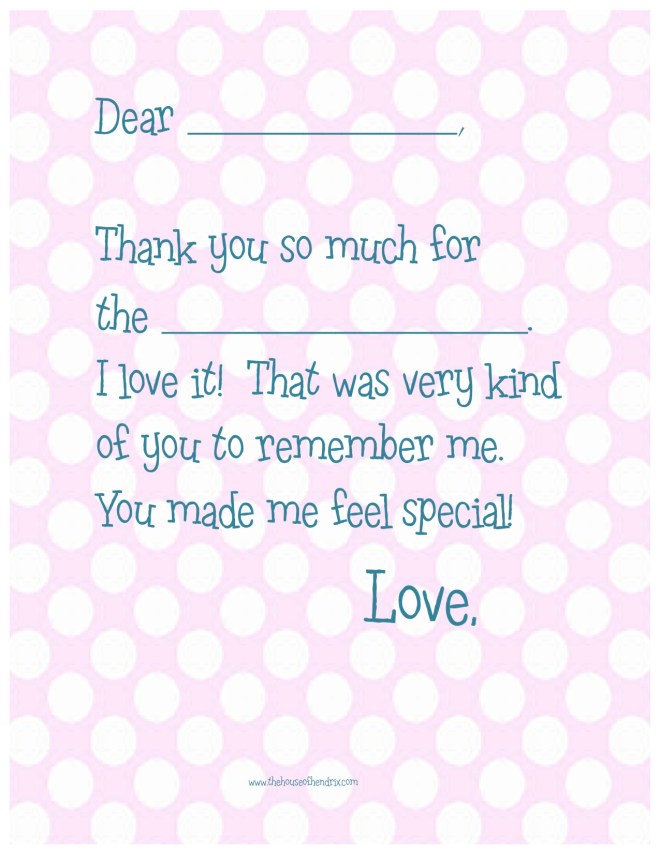 Dear ____________________,
Thank you so much for
the ___________________________.
I love it!  That was very kind
of you to remember me.
You made me feel special!
Love,
www.thehouseofhendrix.com